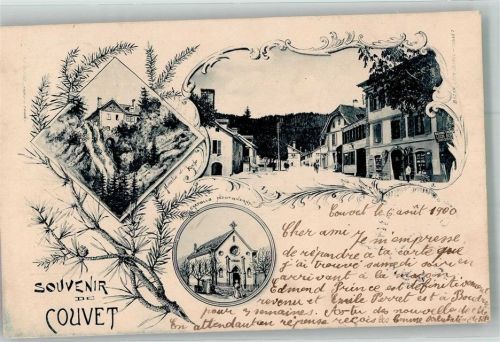 SOUVENIR
DE
COUVET
Couvet le 6 août 1900
Cher ami, Je m'empresse
de répondre à ta carte que
j'ai trouvé samedi soir en
arrivant à la maison.
Edmond Prince est définitivement
revenu et Emile Perret est à
pour 3 semaines. As-tu des nouvelles de
En attendant réponse reçois les